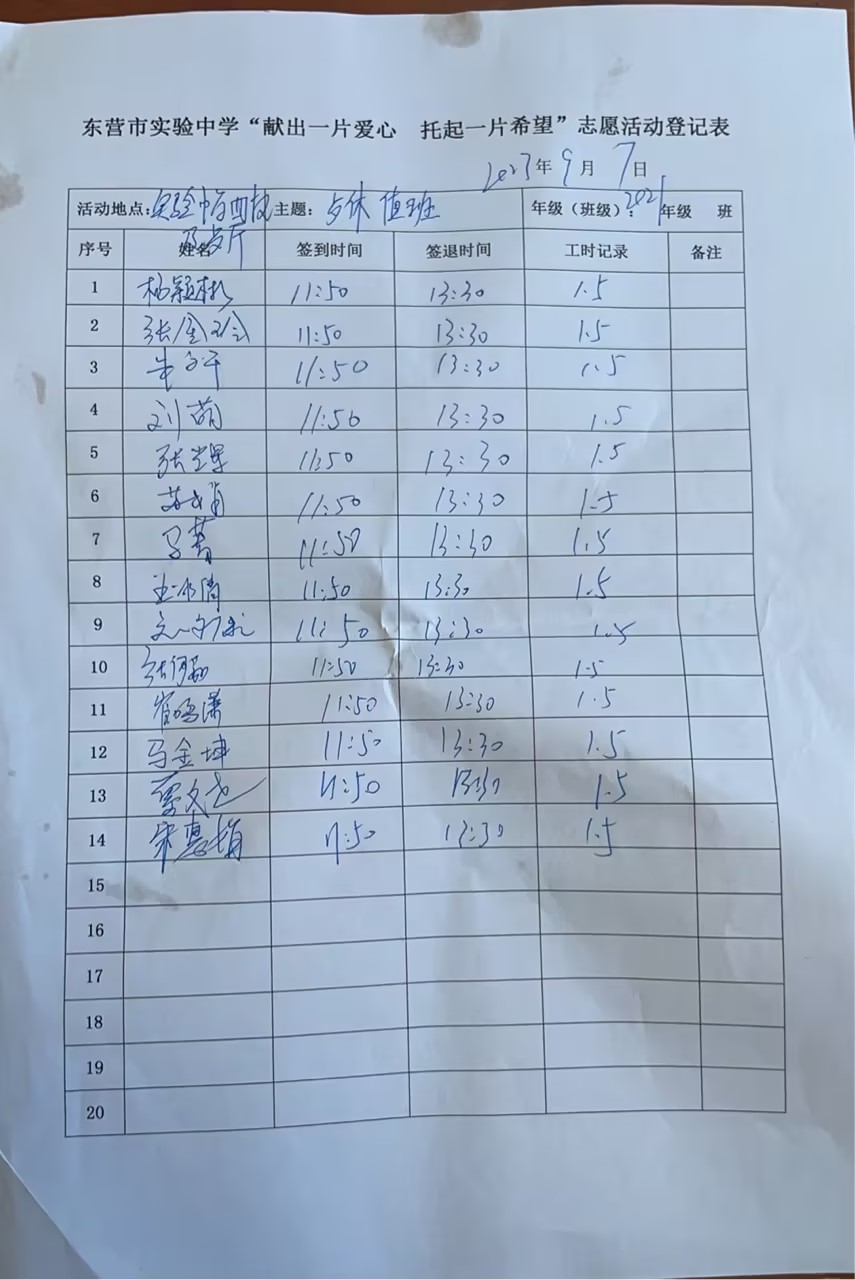 东营市实验中学“献出一片爱心 托起一片希望”志愿活动登记表
2023年9月7日
活动地点：实验中学西校 主题：午休值班 年级（班级）：2021年级 班
序号 姓名 签到时间 签退时间 工时记录 备注
1 11:50 13:30 1.5
2 11:50 13:30 1.5
3 11:50 13:30 1.5
4 刘萌 11:50 13:30 1.5
5 11:50 13:30 1.5
6 11:50 13:30 1.5
7 马菁 11:50 13:30 1.5
8 11:50 13:30 1.5
9 11:50 13:30 1.5
10 11:50 13:30 1.5
11 崔鸣潇 11:50 13:30 1.5
12 马金坤 11:50 13:30 1.5
13 11:50 13:30 1.5
14 宋惠娟 11:50 13:30 1.5
15
16
17
18
19
20